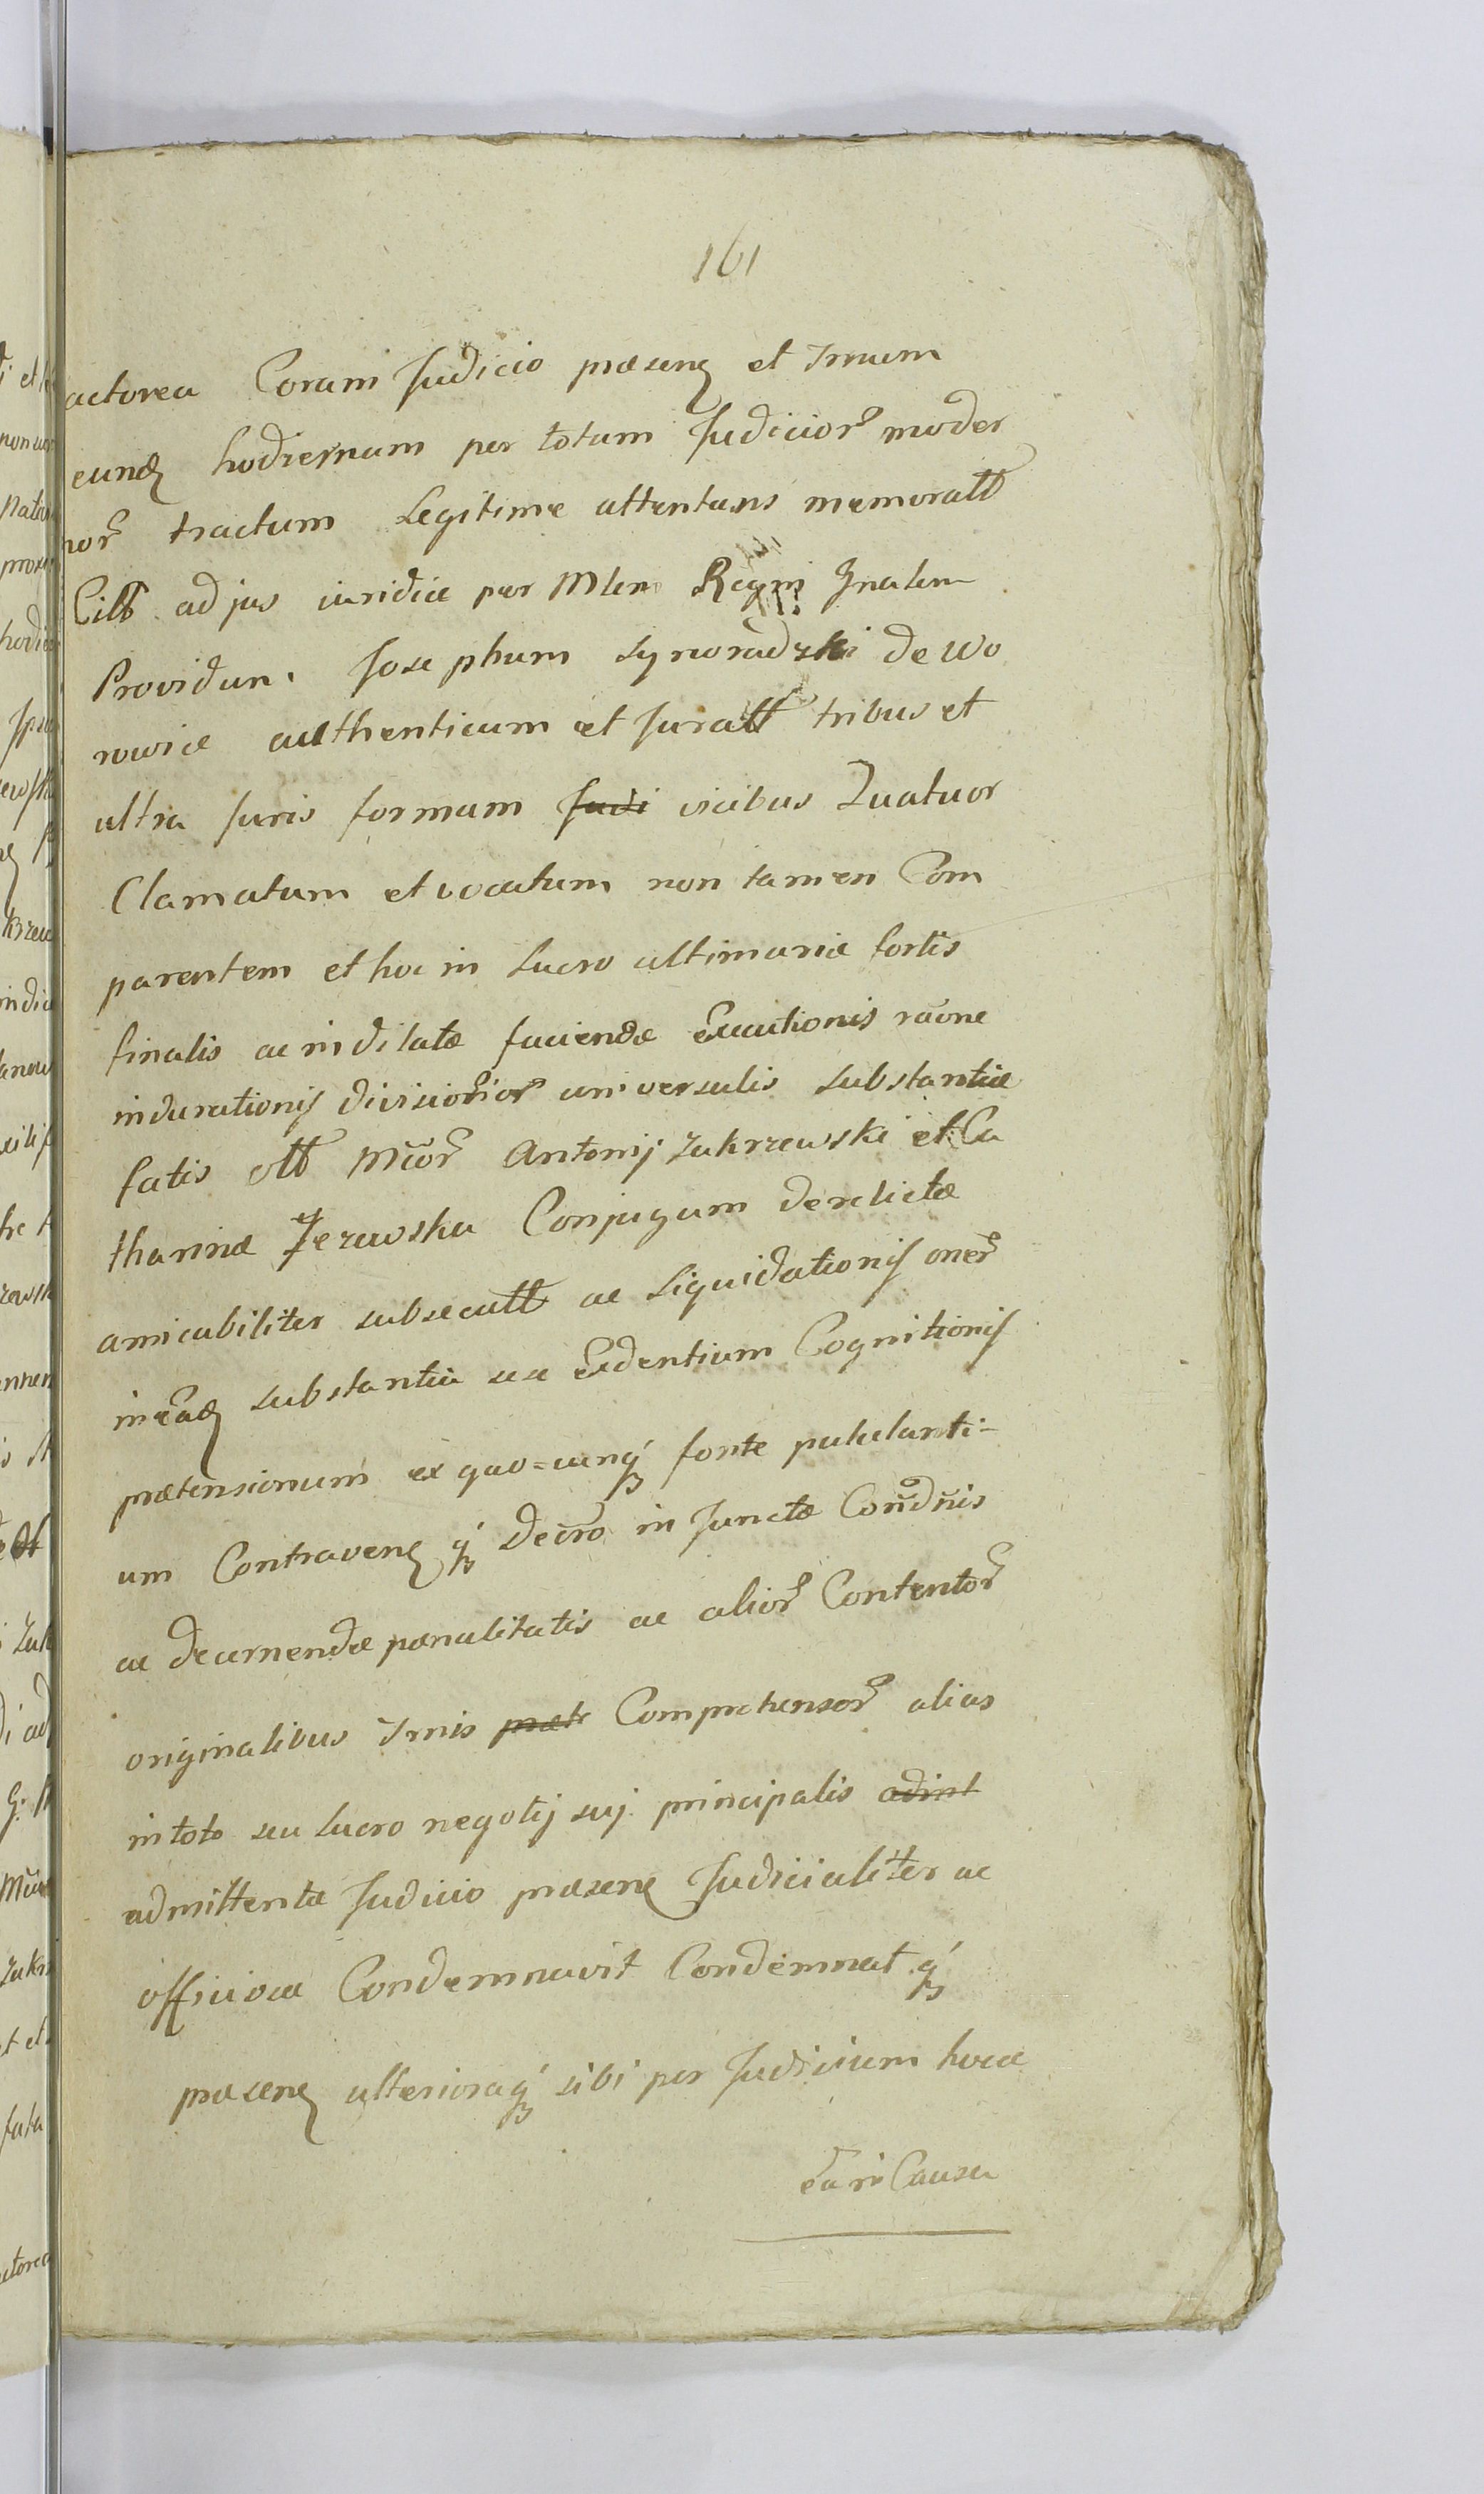 161
actorea Coram Judicio praesenς et Tmum
eundς hodiernum per totum Judicior moder
nor tractum Legitime attentans memoratt
Citt ad jus juridice per Mlem Regni Gnalem
Providum Josephum Syroradzki de Wo
rowice authenticum et Juratt tribus et
ultra Juris formam Judi vicibus Quatuor
Clamatum et vocatum non tamen Com
parentem et hoc in Lucro ultimariae fortis
finalis ac indilatae faciendae Executionis raõne
indurationis divisionior universalis substantiae
fatis olt Mcor Antonij Zakrzewski et Ca
tharinae Jezewska Conjugum derelictae
amicabiliter subsecutt ac Liquidationis oner
in eadς substantia sese Exdentium Cognitionis
praetensionum ex quo=cunq fonte pululanti-
um Contravenς q Decro in Junctae Condnis
ac decernendae paenalitatis ac alior Contentor
originalibus Tmis praet Comprehensor alias
in toto seu lucro negotij suj principalis adint
admittente Judicio praesenς Judicialiter ac
officiose Condemnavit Condemnat q
praesenς ulterioraq sibi per Judicium hocce
ea in Causa